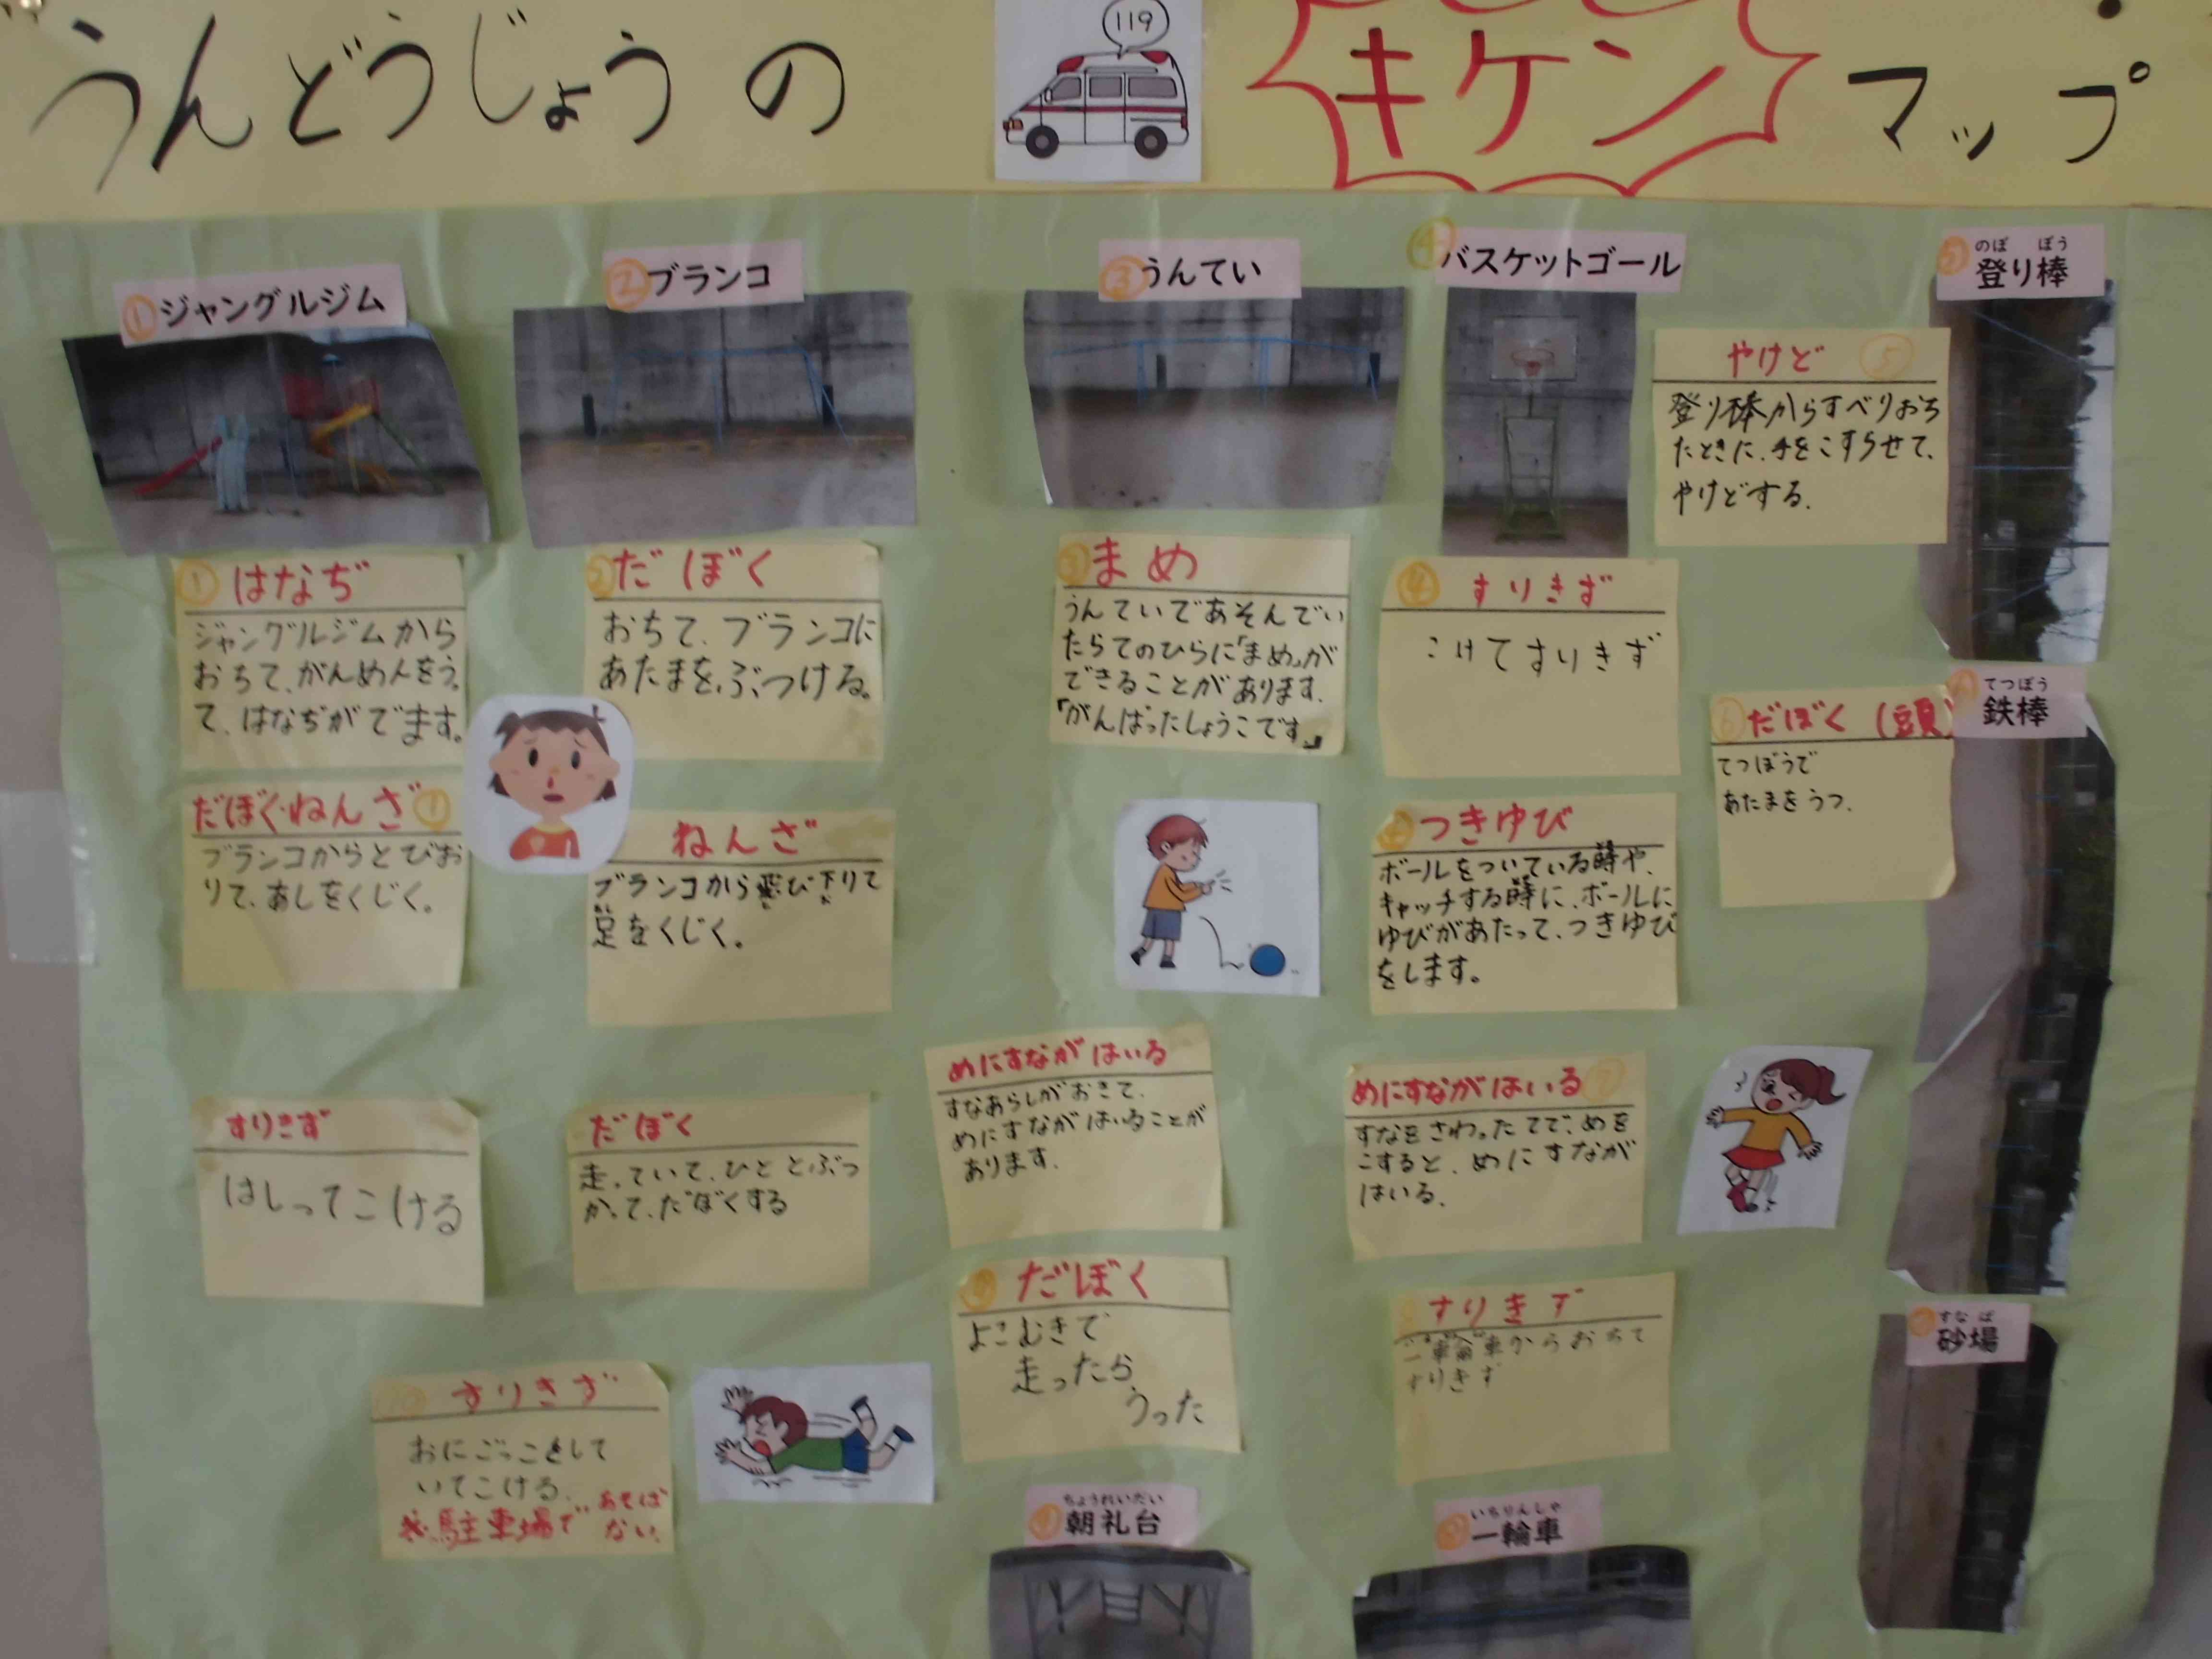 うんどうじょうの
119
キケン
マップ
①ジャングルジム
②ブランコ
③うんてい
④バスケットゴール
のぼ ぼう
⑤登り棒
やけど ⑤
登り棒からすべりおち
たときに、手をこすらせて、
やけどする。
①はなぢ
ジャングルジムから
おちて、がんめんをう
て、はなぢがでます。
②だぼく
おちて、ブランコに
あたまをぶつける。
③まめ
うんていであそんでい
たらてのひらに「まめ」が
できることがあります。
「がんばったしょうこです。」
④すりきず
こけてすりきず
てつぼう
⑥鉄棒
⑥だぼく(頭)
てつぼうで
あたまをうつ。
だぼく・ねんざ①
ブランコからとびお
りて、あしをくじく。
ねんざ
ブランコから飛び下りて
足をくじく。
④つきゆび
ボールをついている時や、
キャッチする時に、ボールに
ゆびがあたって、つきゆび
をします。
すりきず
はしってこける
だぼく
走っていて、ひととぶつ
かって、だぼくする
めにすながはいる
すなあらしがおきて、
めにすながはいることが
あります。
めにすながはいる⑦
すなをさわったてで、めを
こすると、めにすなが
はいる。
⑨だぼく
よこむきで
走ったら
うった
すりきず
一輪車からおちて
すりきず
すな ば
⑦砂場
⑩すりきず
おにごっこをして
いてこける。
※駐車場であそば
ない。
ちょうれいだい
⑨朝礼台
いちりんしゃ
⑧一輪車